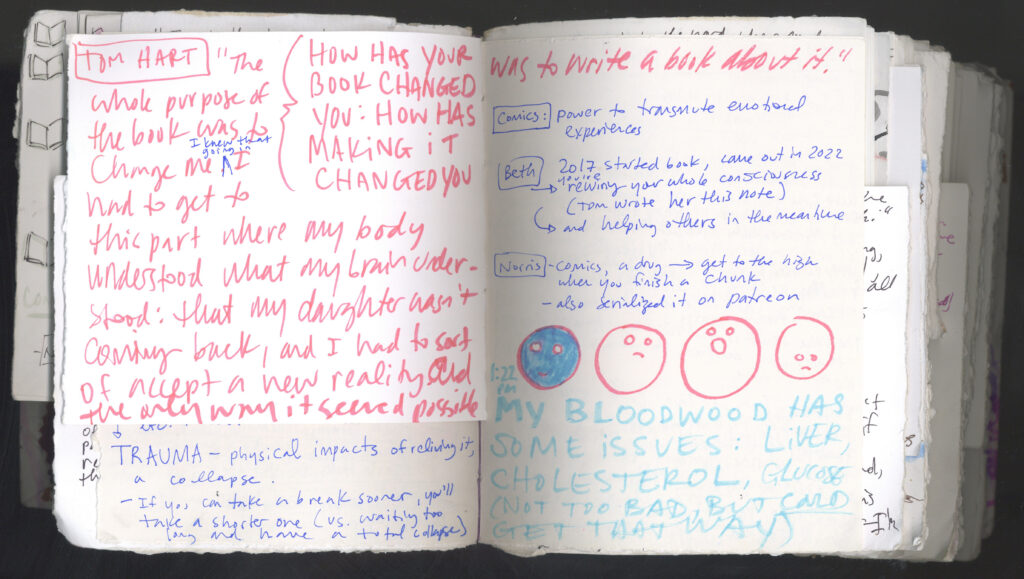 TOM HART "The
whole purpose of
the book was to
I knew that
going in
Change me ^ I
had to get to
this part where my body
understood what my brain under-
stood: that my daughter wasn't
coming back, and I had to sort
of accept a new reality and
the only way it seemed possible
HOW HAS YOUR
BOOK CHANGED
YOU: HOW HAS
MAKING IT
CHANGED YOU
TRAUMA - physical impacts of reliving it,
a collapse.
- If you can take a break sooner, you'll
take a shorter one (vs. waiting too
long and have a total collapse)
was to write a book about it."
Comics: power to transmute emotional
experiences
Beth 2017 started book, came out in 2022
you're
→ rewiring your whole consciousness
(Tom wrote her this note)
↳ and helping others in the meantime
Norris - comics, a drug → get to the high
when you finish a chunk
- also serialized it on patreon
1:22
pm
MY BLOODWOOD HAS
SOME ISSUES: LIVER,
CHOLESTEROL, GLUCOSE
(NOT TOO BAD, BUT COULD
GET THAT WAY)